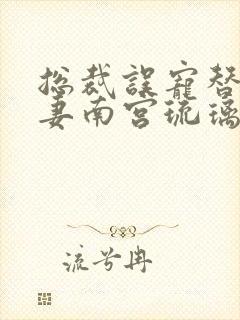 总裁误宠替
妻南宫琉璃
流兮冉